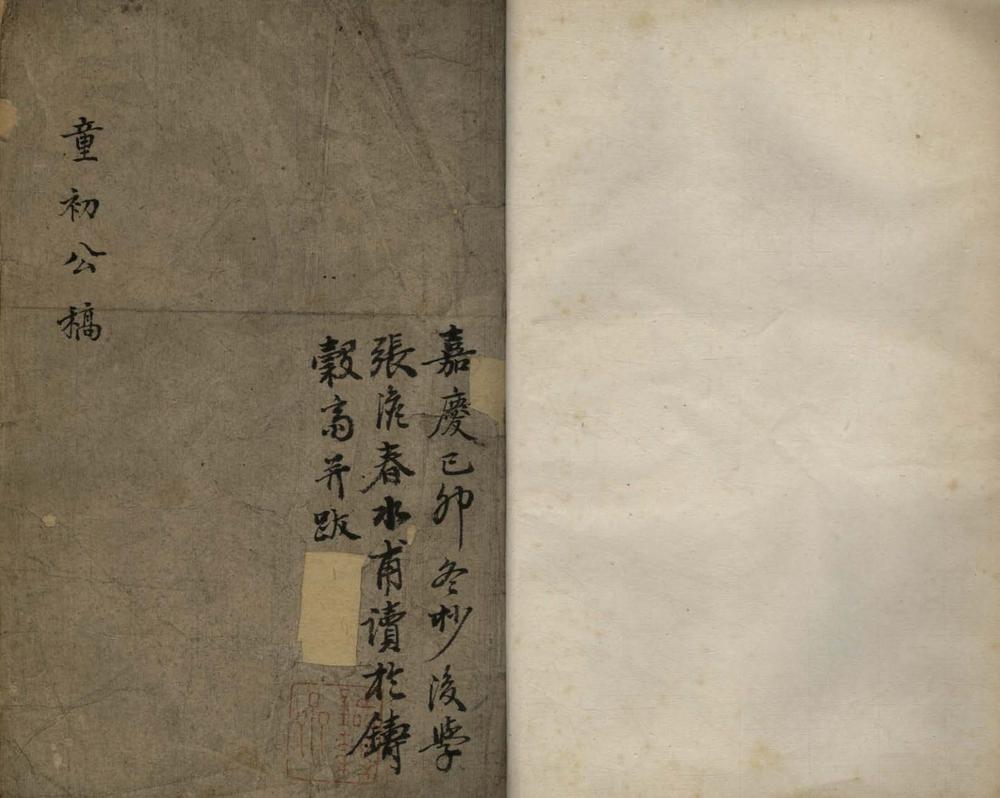 嘉慶己卯冬杪後學
張澹春水甫讀於鑄
穀齋并跋
童初公稿